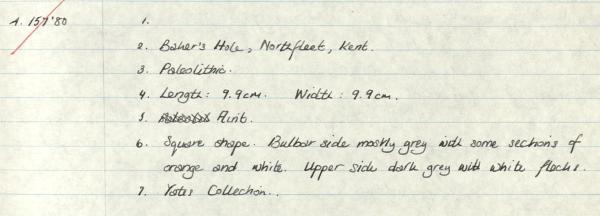 A. 157'80
1.
2. Baker's Hole, Northfleet, Kent.
3. Paleolithic.
4. Length: 9.9cm. Width: 9.9cm.
5. Flint.
6. Square shape. Bulbar side mostly grey with some sections of
orange and white. Upper side dark grey with white flecks.
7. Yates Collection.